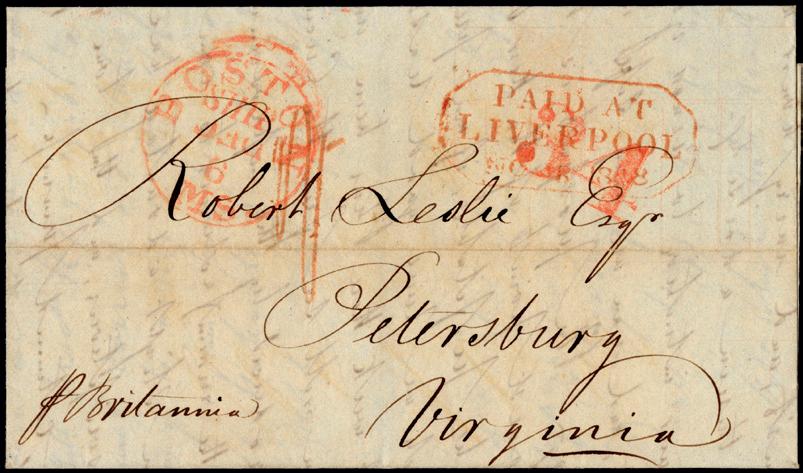 BOSTON
SHIP
MS
PAID AT
LIVERPOOL
34
Robert Leslie Esqr
Petersburg
Virginia
p Britannia